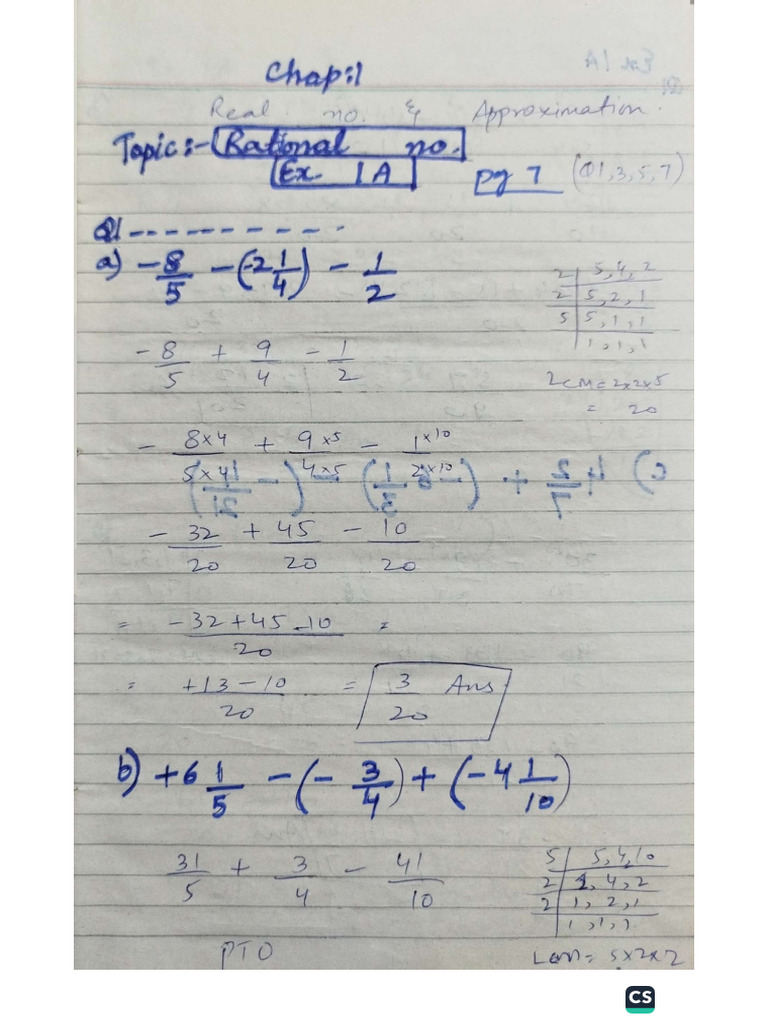 Chap:1
Real no. & Approximation.
Topic:- Rational no.
Ex. 1A pg 7 (Q1,3,5,7)
Q1 ----------
a) -8/5 - (-2 1/4) - 1/2
2 | 5, 4, 2
2 | 5, 2, 1
5 | 5, 1, 1
| 1, 1, 1
LCM = 2x2x5
= 20
-8/5 + 9/4 - 1/2
- 8x4/5x4 + 9x5/4x5 - 1x10/2x10
- 32/20 + 45/20 - 10/20
= -32+45-10/20 =
= +13-10/20 = 3/20 Ans
b) +6 1/5 - (- 3/4) + (-4 1/10)
31/5 + 3/4 - 41/10
5 | 5, 4, 10
2 | 1, 4, 2
2 | 1, 2, 1
| 1, 1, 1
LCM = 5x2x2
PTO
CS